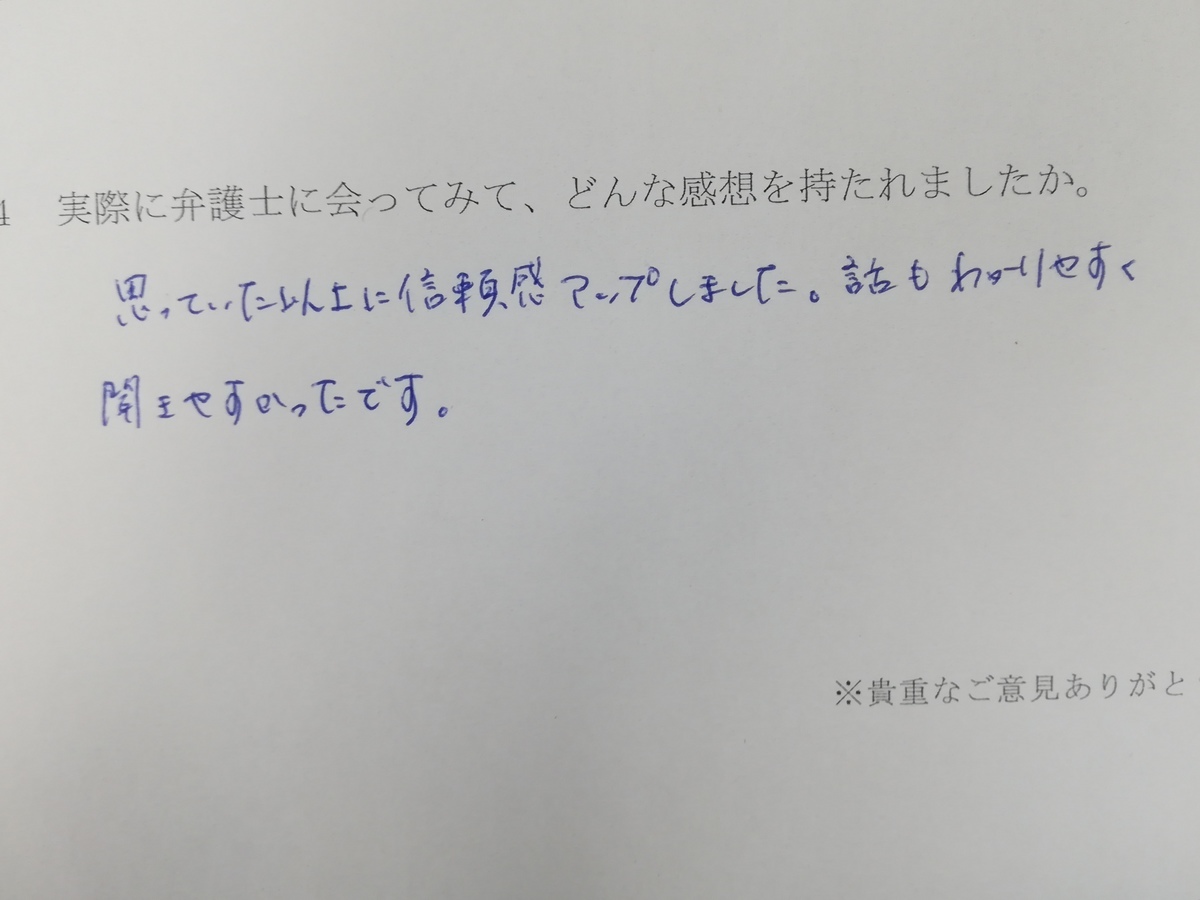 4 実際に弁護士に会ってみて、どんな感想を持たれましたか。
思っていた以上に信頼感アップしました。話もわかりやすく
聞きやすかったです。
※貴重なご意見ありがと